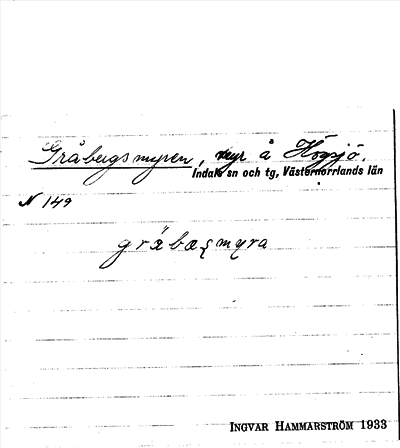 Gråbergsmyren, myr å Högsjö.
Indals sn och tg, Västernorrlands län
N 149
gräbæʂmyra
INGVAR HAMMARSTRÖM 1933